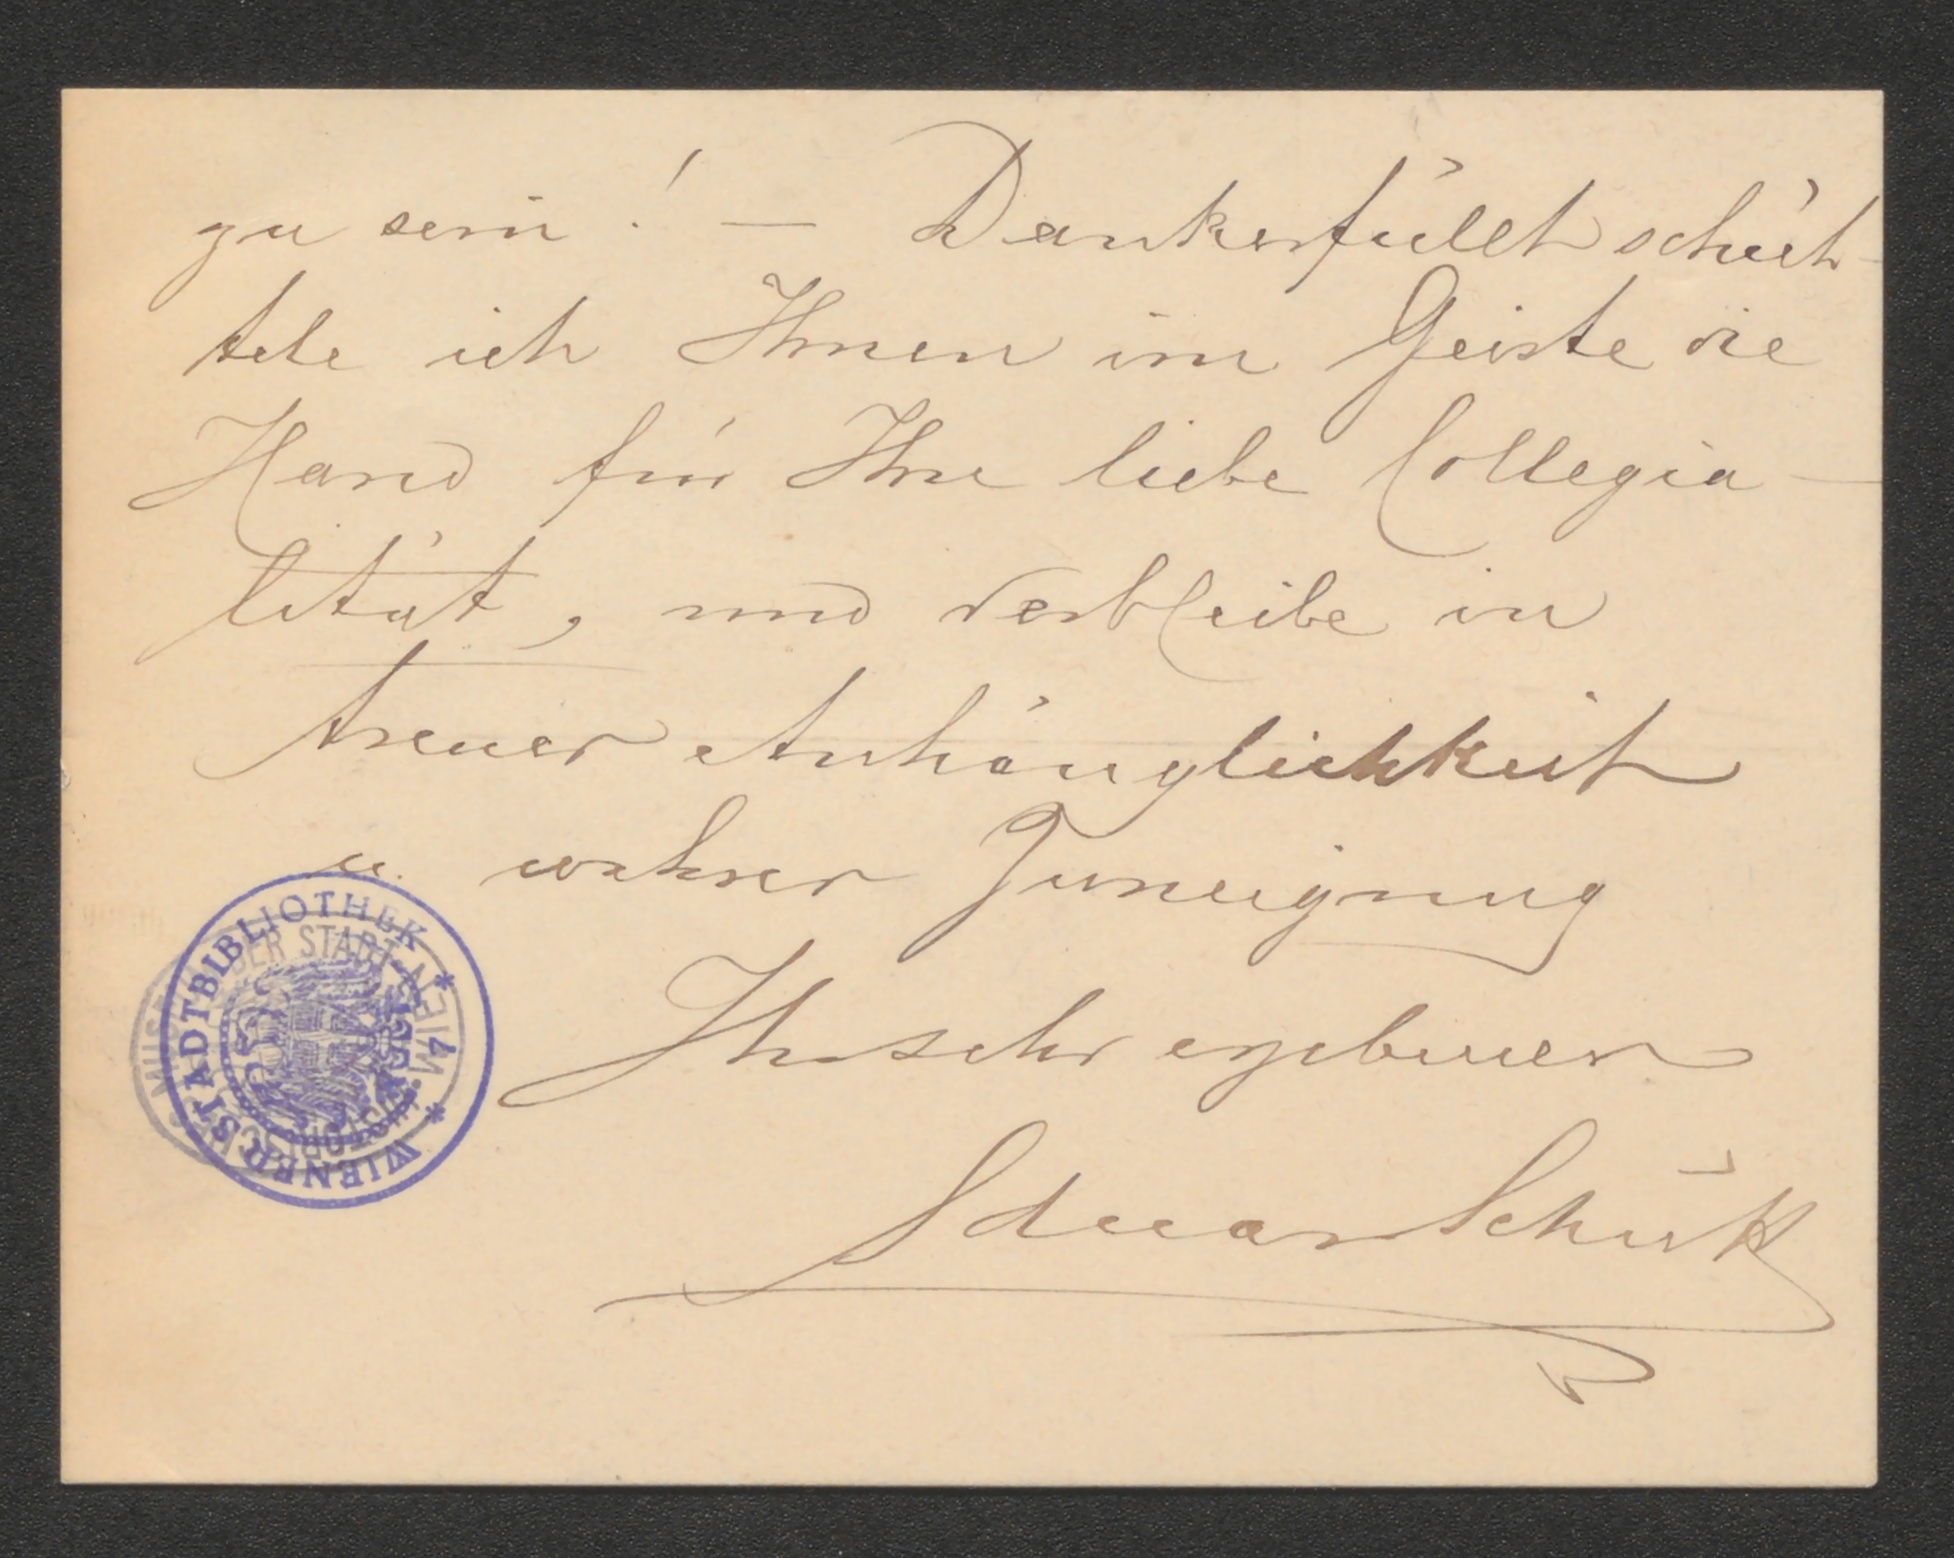 zu sein! — Dankerfüllt schüt-
tele ich Ihnen im Geiste die
Hand für Ihre liebe Collegia-
lität, und verbleibe in
treuer Anhänglichkeit
u. wahrer Zuneigung
Ihr sehr ergebener
Eduard Schütt
WIENER STADTBIBLIOTHEK
DER STADT WIEN